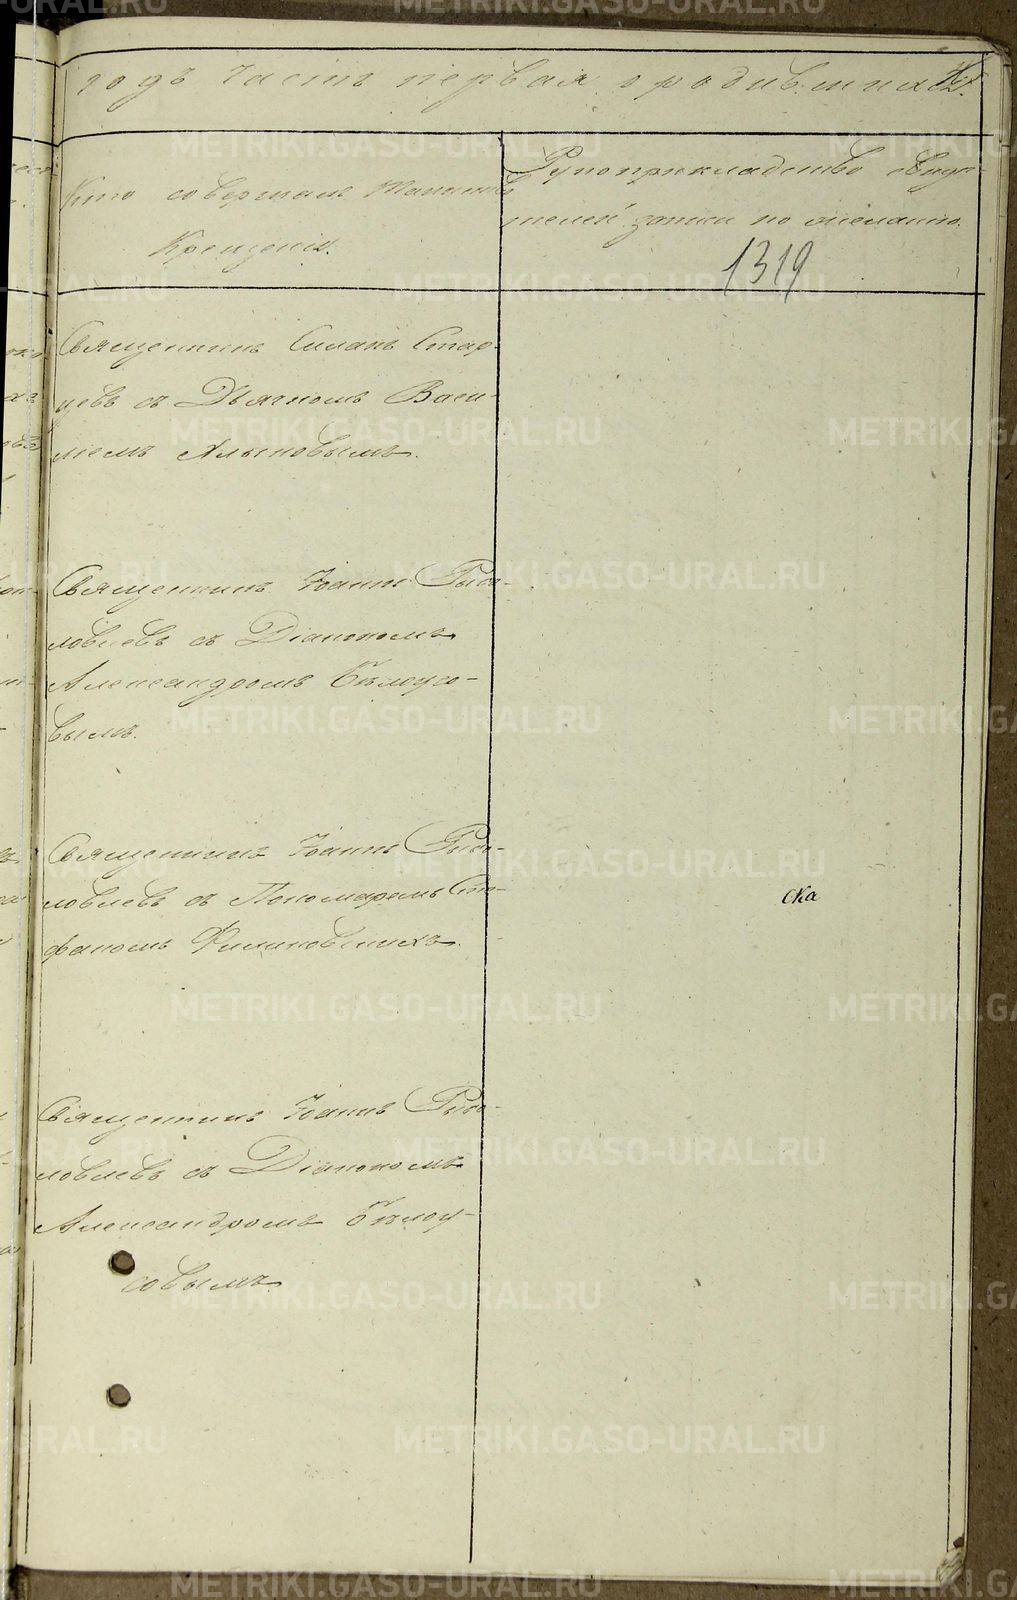 годъ Часть первая о родившихся.
Кто совершалъ Таинство
Крещенія.
Рукоприкладство свидѣ-
телей записи по желанію.
1319
Священникъ Силанъ Стар-
цевъ съ Дьячкомъ Васи-
ліемъ Ляпновымъ.
Священникъ Іоаннъ Рыбо-
ловлевъ съ Діакономъ
Александромъ Бѣлоусо-
вымъ.
Священникъ Іоаннъ Рыбо-
ловлевъ съ Пономаремъ Сте-
фаномъ Филиновскихъ.
ска
Священникъ Іоаннъ Рыбо-
ловлевъ съ Діакономъ
Александромъ Бѣлоу-
совымъ.
METRIKI.GASO-URAL.RU